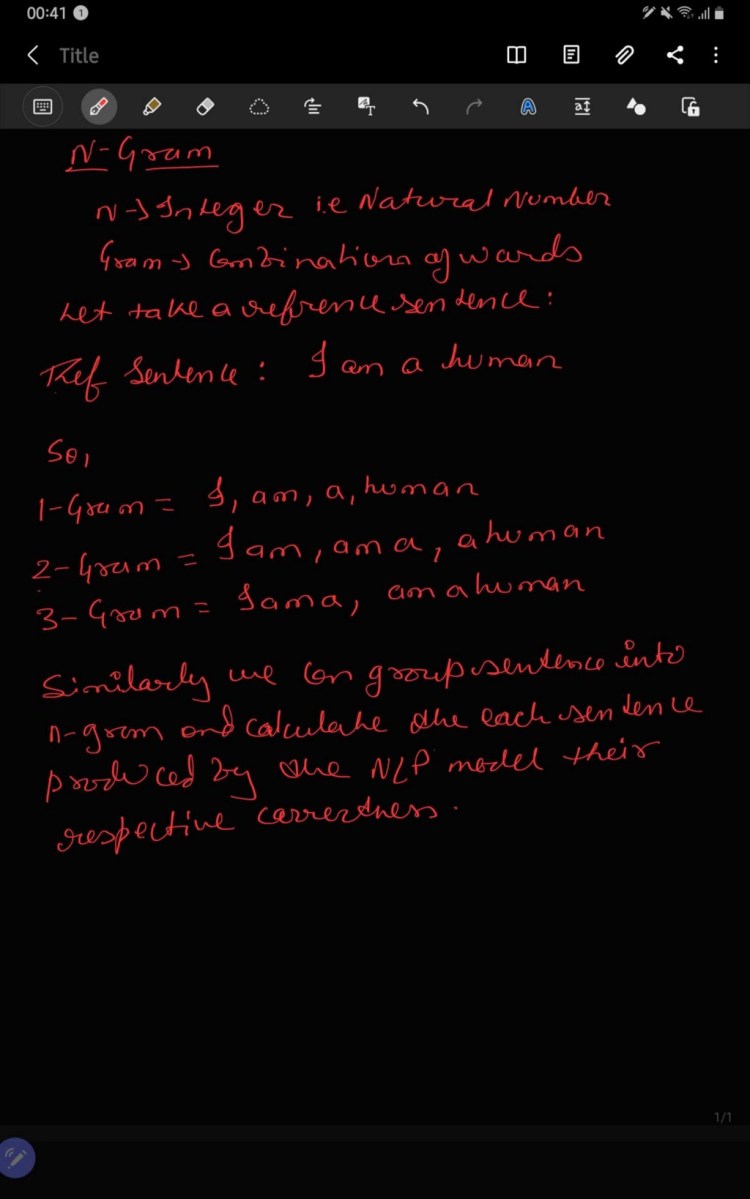 00:41 1
Title
N-Gram
N → Integer i.e Natural Number
Gram → Combination of words
Let take a refrence sentence:
Ref Sentence: I am a human
So,
1-Gram = I, am, a, human
2-Gram = I am, am a, a human
3-Gram = I am a, am a human
Similarly we can group sentence into
n-gram and calculate the each sentence
produced by the NLP model their
respective correctness.
1/1